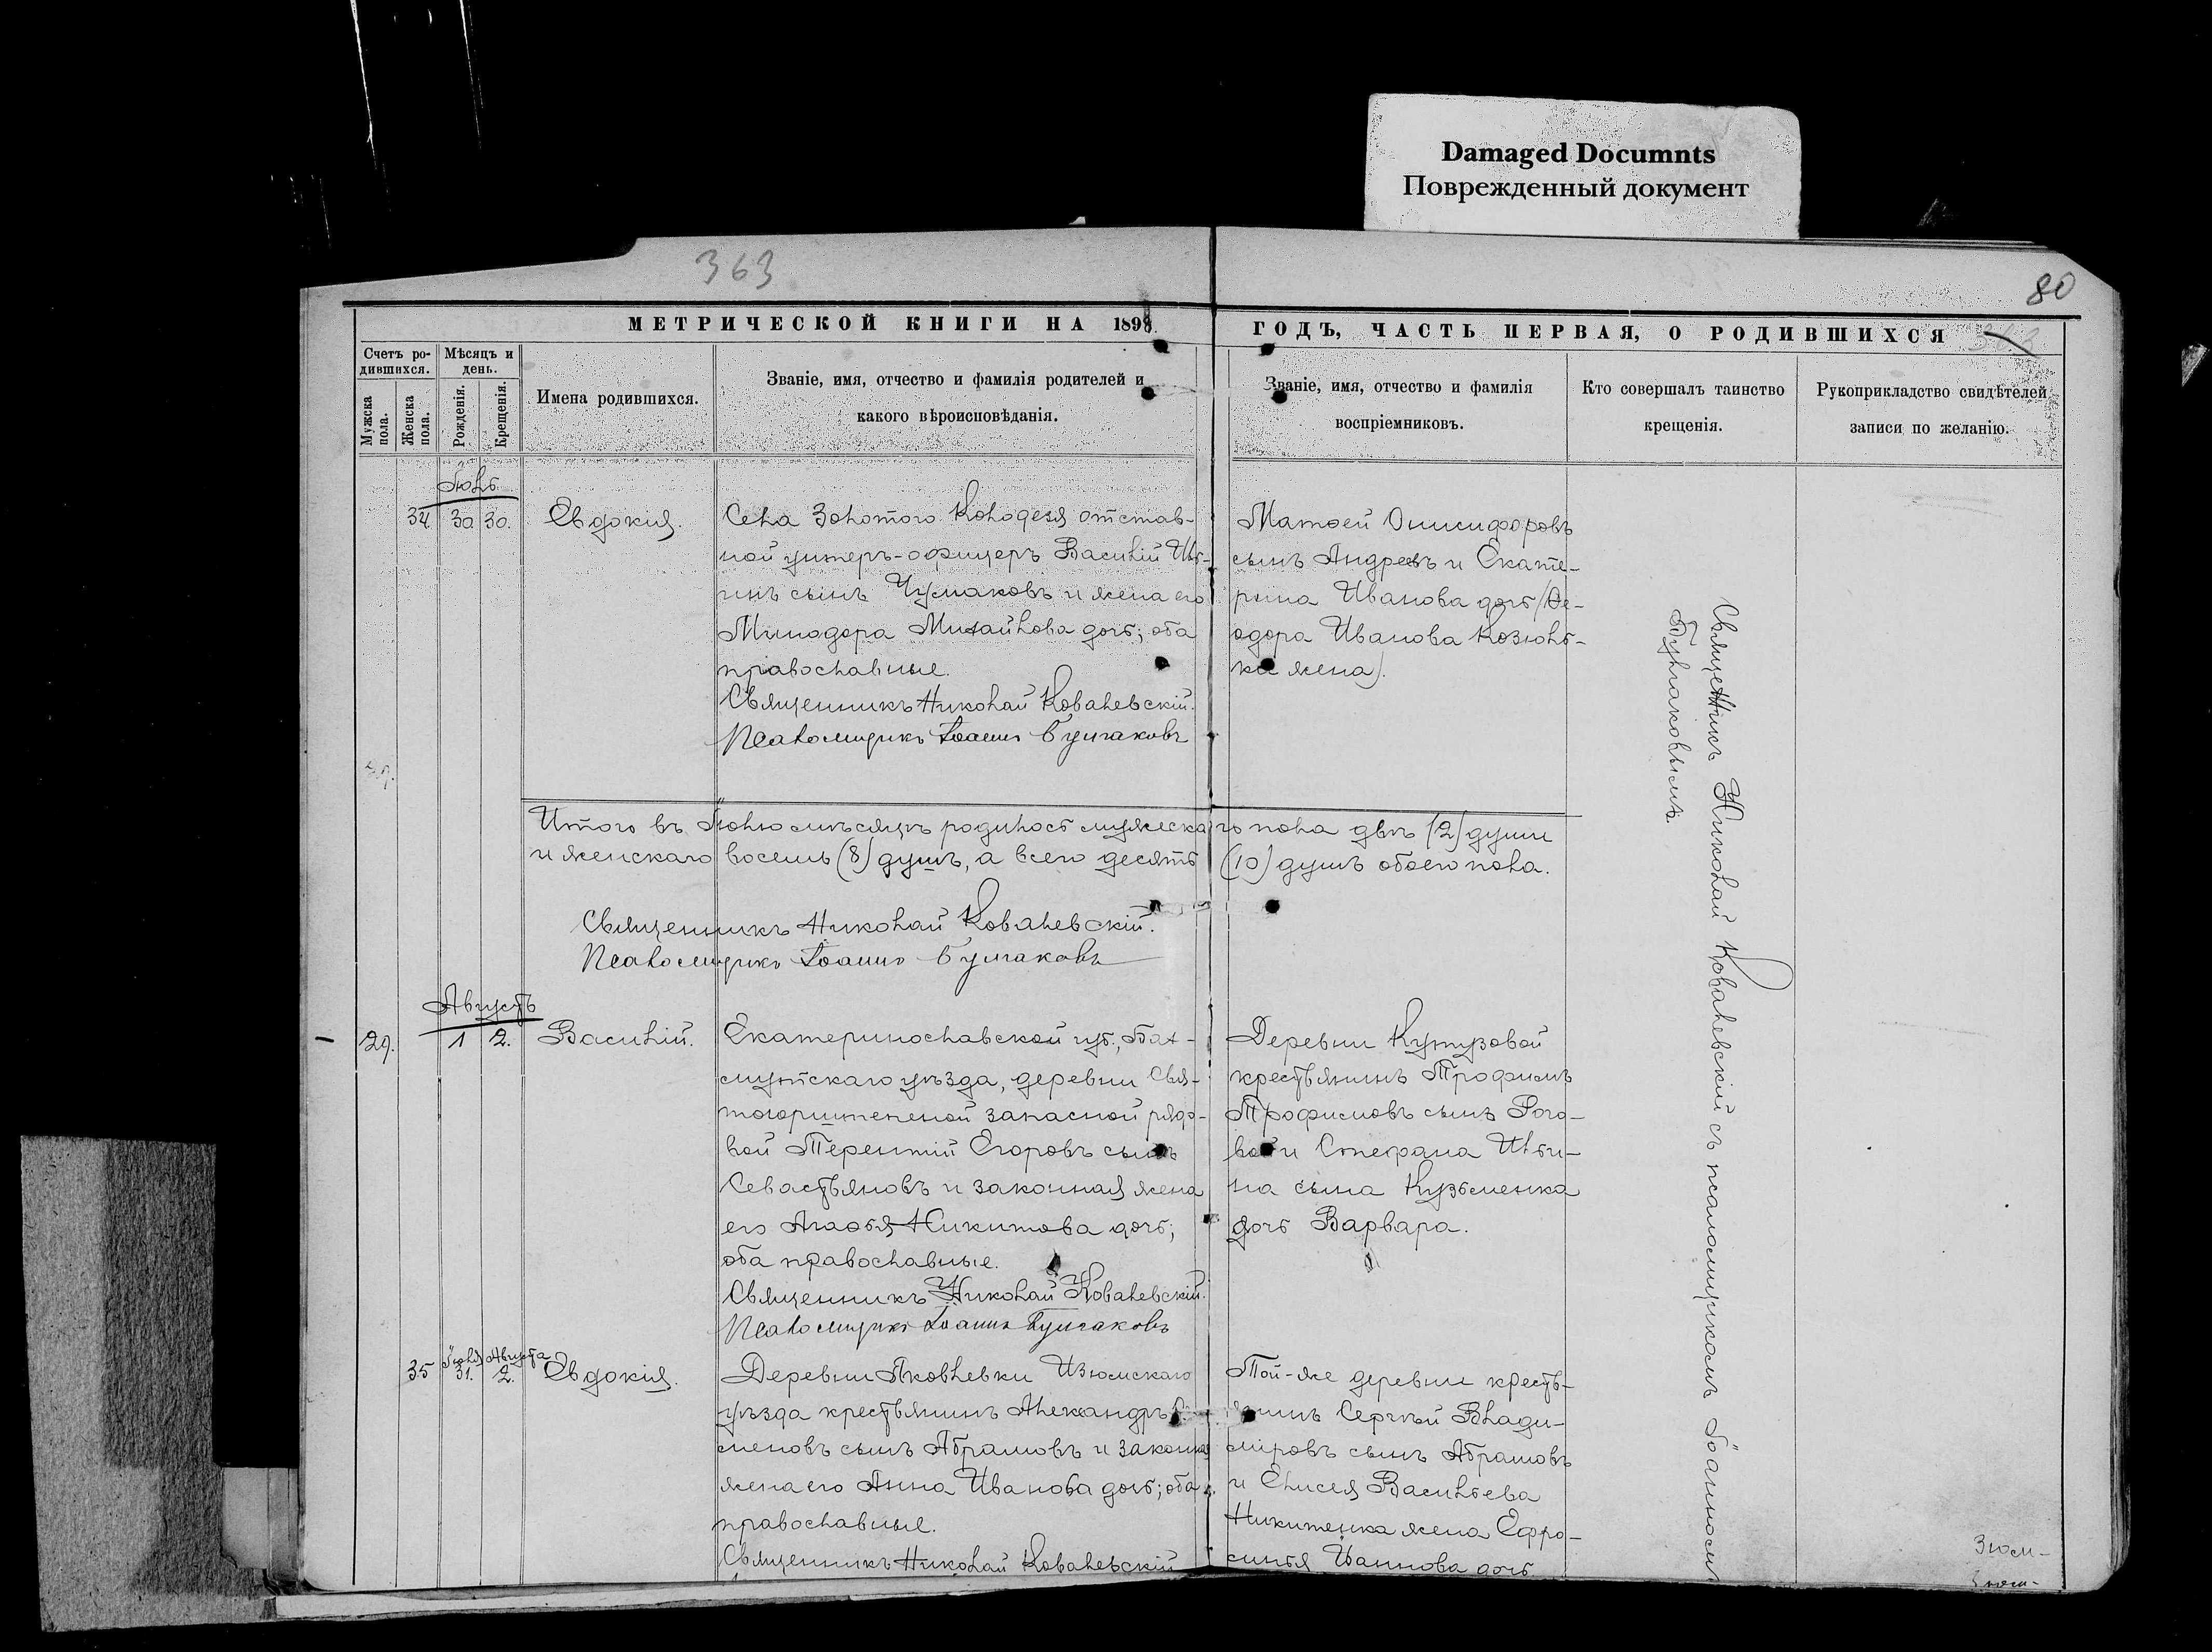 Damaged Documnts
Поврежденный документ
363
80
МЕТРИЧЕСКОЙ КНИГИ НА 1898
ГОДЪ, ЧАСТЬ ПЕРВАЯ, О РОДИВШИХСЯ
Счетъ ро-
дившихся.
Мѣсяцъ и
день.
Мужска
пола.
Женска
пола.
Рожденія.
Крещенія.
Имена родившихся.
Званіе, имя, отчество и фамилія родителей и
какого вѣроисповѣданія.
Званіе, имя, отчество и фамилія
воспріемниковъ.
Кто совершалъ таинство
крещенія.
Рукоприкладство свидѣтелей
записи по желанію.
Іюль.
34. 30 30. Евдокія.
Села Золотого Колодезя отстав-
ной унтеръ-офицеръ Василій Иль-
инъ сынъ Чумаковъ и жена его
Минодора Михайлова дочь; оба
православные.
Священникъ Николай Ковалевскій.
Псаломщикъ Іоаннъ Булгаковъ
Матѳей Онисифоровъ
сынъ Андреевъ и Екате-
рина Иванова дочь (Ѳе-
одора Иванова Козюль-
ка жена).
Священникъ Николай Ковалевскій съ псаломщикомъ Іоанномъ
Булгаковымъ.
Итого въ Іюлѣ мѣсяцѣ родилось мужескаго пола двѣ (2) души
и женскаго восемь (8) душъ, а всего десять (10) душъ обоего пола.
Священникъ Николай Ковалевскій.
Псаломщикъ Іоаннъ Булгаковъ
Августъ
29. 1 2. Василій.
Екатеринославской губ., Бах-
мутскаго уѣзда, деревни Свя-
запасной рядо-
вой Терентій Егоровъ сынъ
Севастьяновъ и законная жена
его Агаѳья Никитова дочь;
оба православные.
Священникъ Николай Ковалевскій.
Псаломщикъ Іоаннъ Булгаковъ
Деревни Кутузовой
крестьянинъ Трофимъ
Трофимовъ сынъ Рого-
вой и Стефана Ильи-
на сына Кузьменка
дочь Варвара.
Іюля Августа
35 31. 2. Евдокія.
Деревни Яковлевки Изюмскаго
уѣзда крестьянинъ Александръ
меновъ сынъ Абрамовъ и законная
жена его Анна Иванова дочь; оба
православные.
Священникъ Николай Ковалевскій
Той-же деревни кресть-
янинъ Сергѣй Влади-
міровъ сынъ Абрамовъ
и Елисея Васильева
Никитенка жена Ефро-
синья Иванова дочь